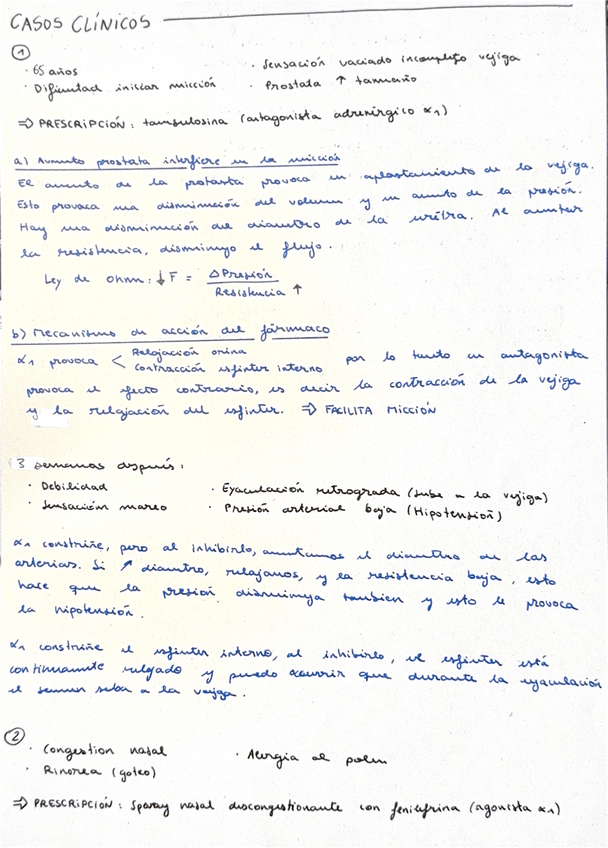 CASOS CLÍNICOS
①
· 65 años
· Sensación vaciado incompleto vejiga
· Dificultad iniciar micción
· Prostata ↑ tamaño
⇒ PRESCRIPCIÓN: tamsulosina (antagonista adrenérgico α₁)
a) Aumento prostata interfiere en la micción
El aumento de la protasta provoca un aplastamiento de la vejiga.
Esto provoca una disminución del volumen y un aumento de la presión.
Hay una disminución del diametro de la uretra. Al aumentar
la resistencia, disminuye el flujo.
Ley de Ohm: ↓ F = ΔPresión / Resistencia ↑
b) Mecanismo de acción del fármaco
α₁ provoca < Relajación
Contracción esfinter interno
por lo tanto un antagonista
provoca el efecto contrario, es decir la contracción de la vejiga
y la relajación del esfinter. ⇒ FACILITA MICCIÓN
3 semanas después:
· Debilidad
· Eyaculación retrograda (sube a la vejiga)
· Sensación mareo
· Presión arterial baja (Hipotensión)
α₁ constriñe, pero al inhibirlo, aumentamos el diametro de las
arterias. Si ↗ diametro, relajamos, y la resistencia baja, esto
hace que la presión disminuya tambien y esto le provoca
la hipotensión.
α₁ constriñe el esfinter interno, al inhibirlo, el esfinter está
continuamente relajado y puede ocurrir que durante la eyaculación
el semen suba a la vejiga.
②
· Congestion nasal
· Alergia al polen
· Rinorea (goteo)
⇒ PRESCRIPCIÓN: Sparay nasal descongestionante con fenilefrina (agonista α₁)